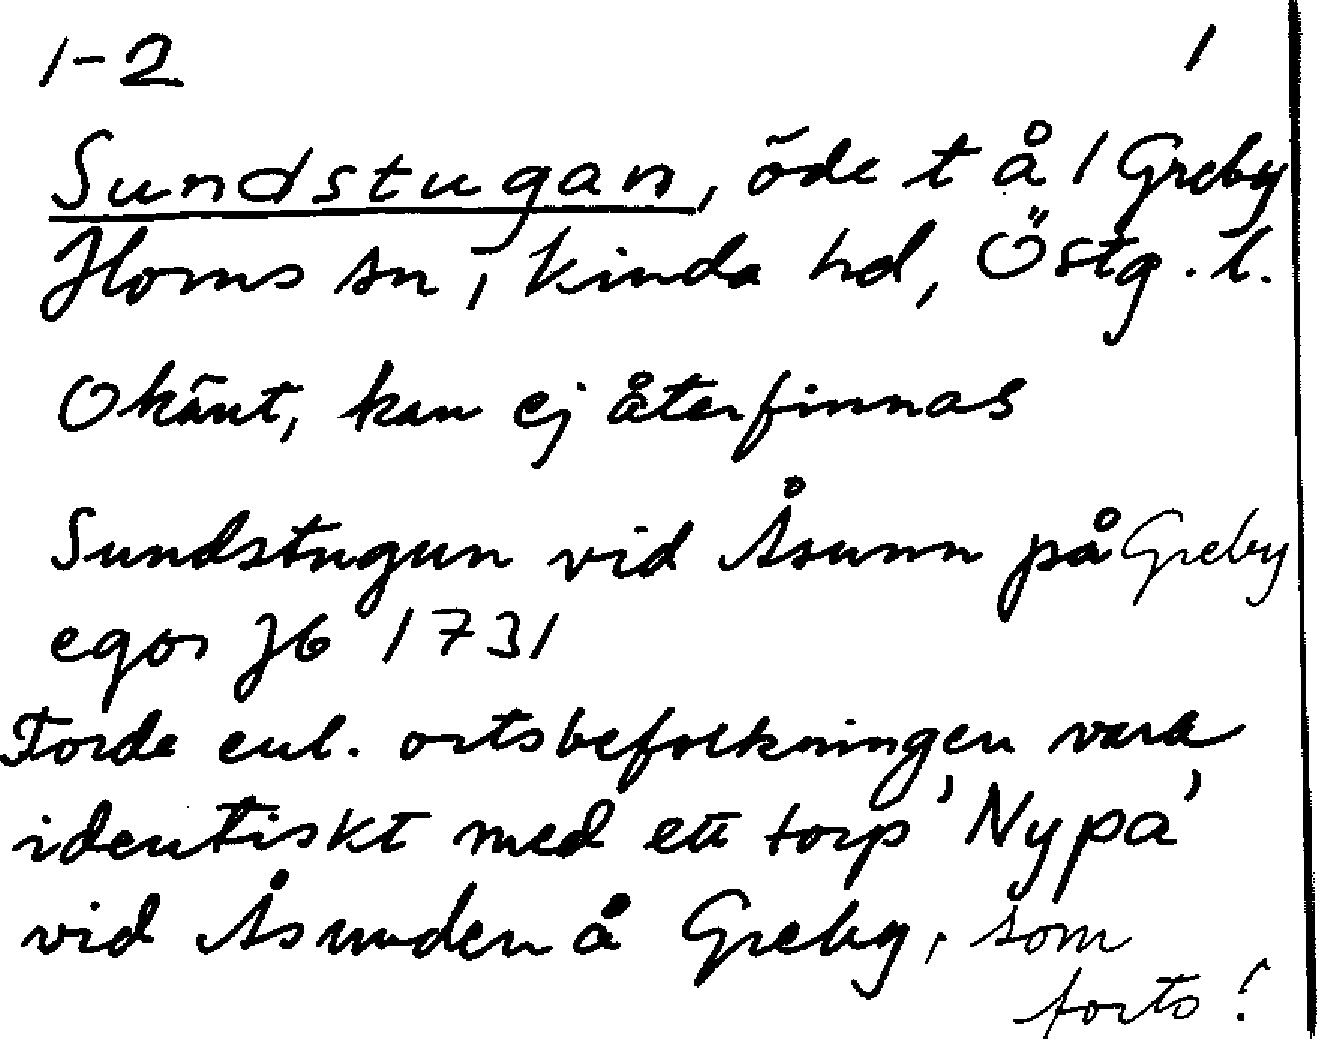 1-2 1
Sundstugan, öde t å 1 Greby
Horns sn, Kinda hd, Östg. l.
Okänt, kan ej återfinnas
Sundstugun vid Åsunn på Greby
egor Jb 1731
Torde enl. ortsbefolkningen vara
identiskt med ett torp 'Nypa'
vid Åsunden å Greby, som
forts!